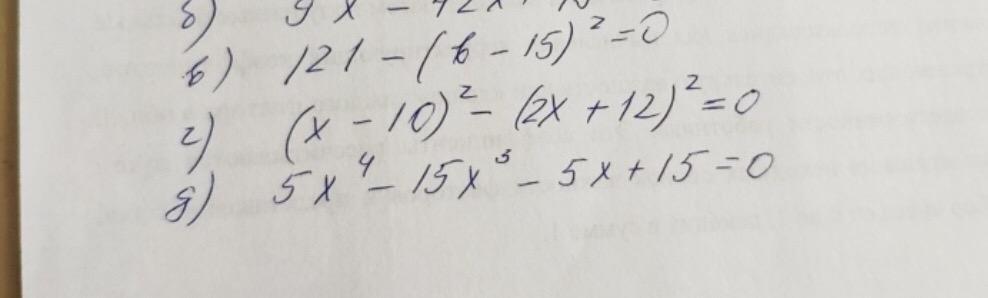 б) 9x² - 42x
в) 121 - (b - 15)² = 0
г) (x - 10)² - (2x + 12)² = 0
д) 5x⁴ - 15x³ - 5x + 15 = 0